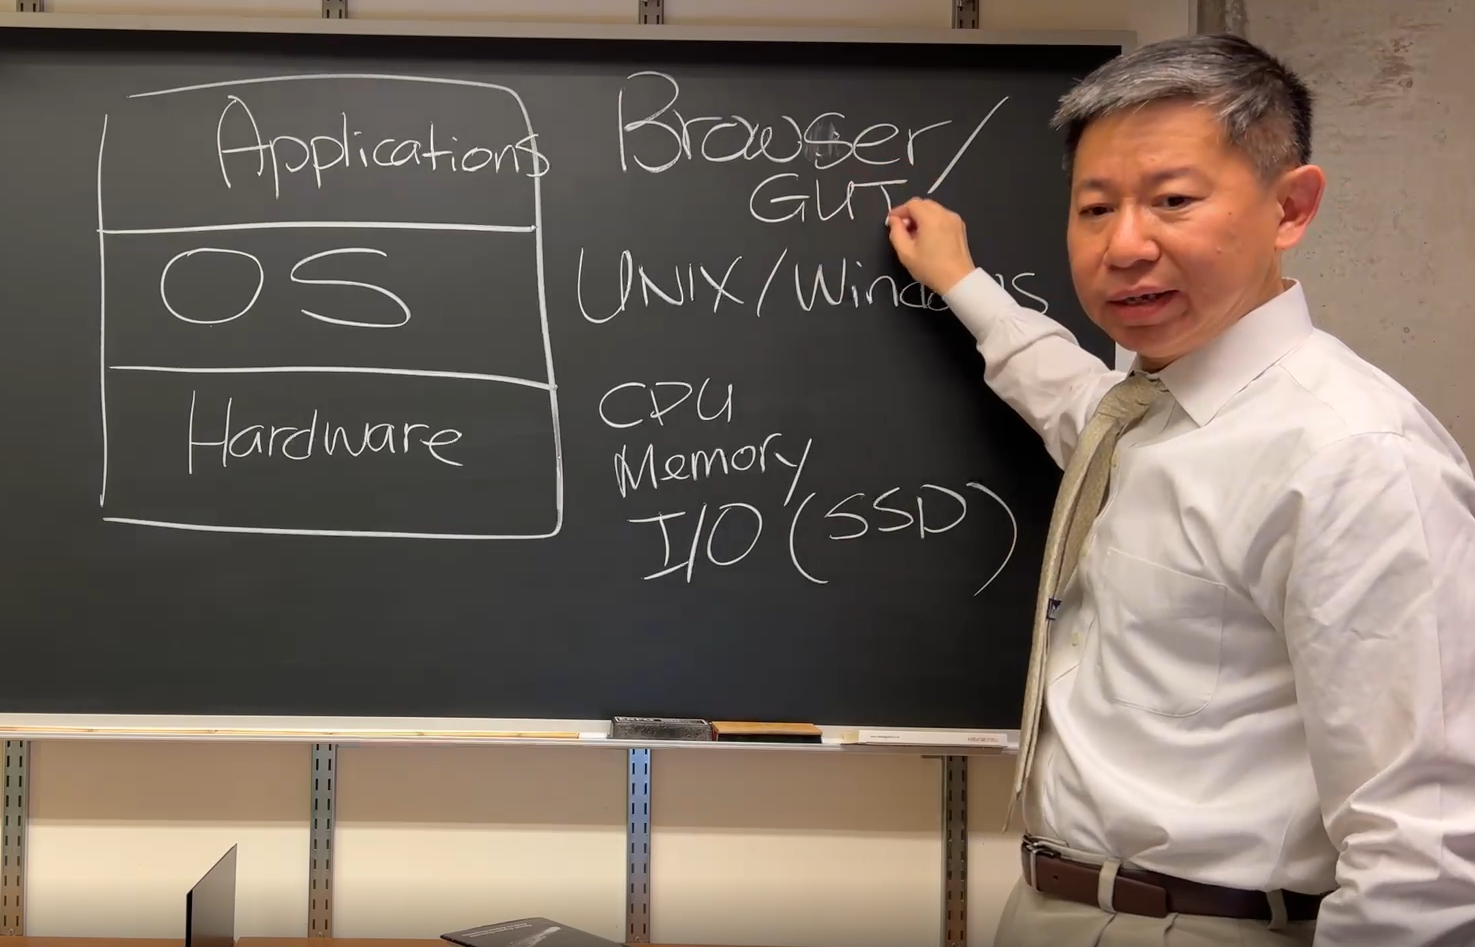 Applications
OS
Hardware
Browser/
GUI
UNIX/Windows
CPU
Memory
I/O (SSD)